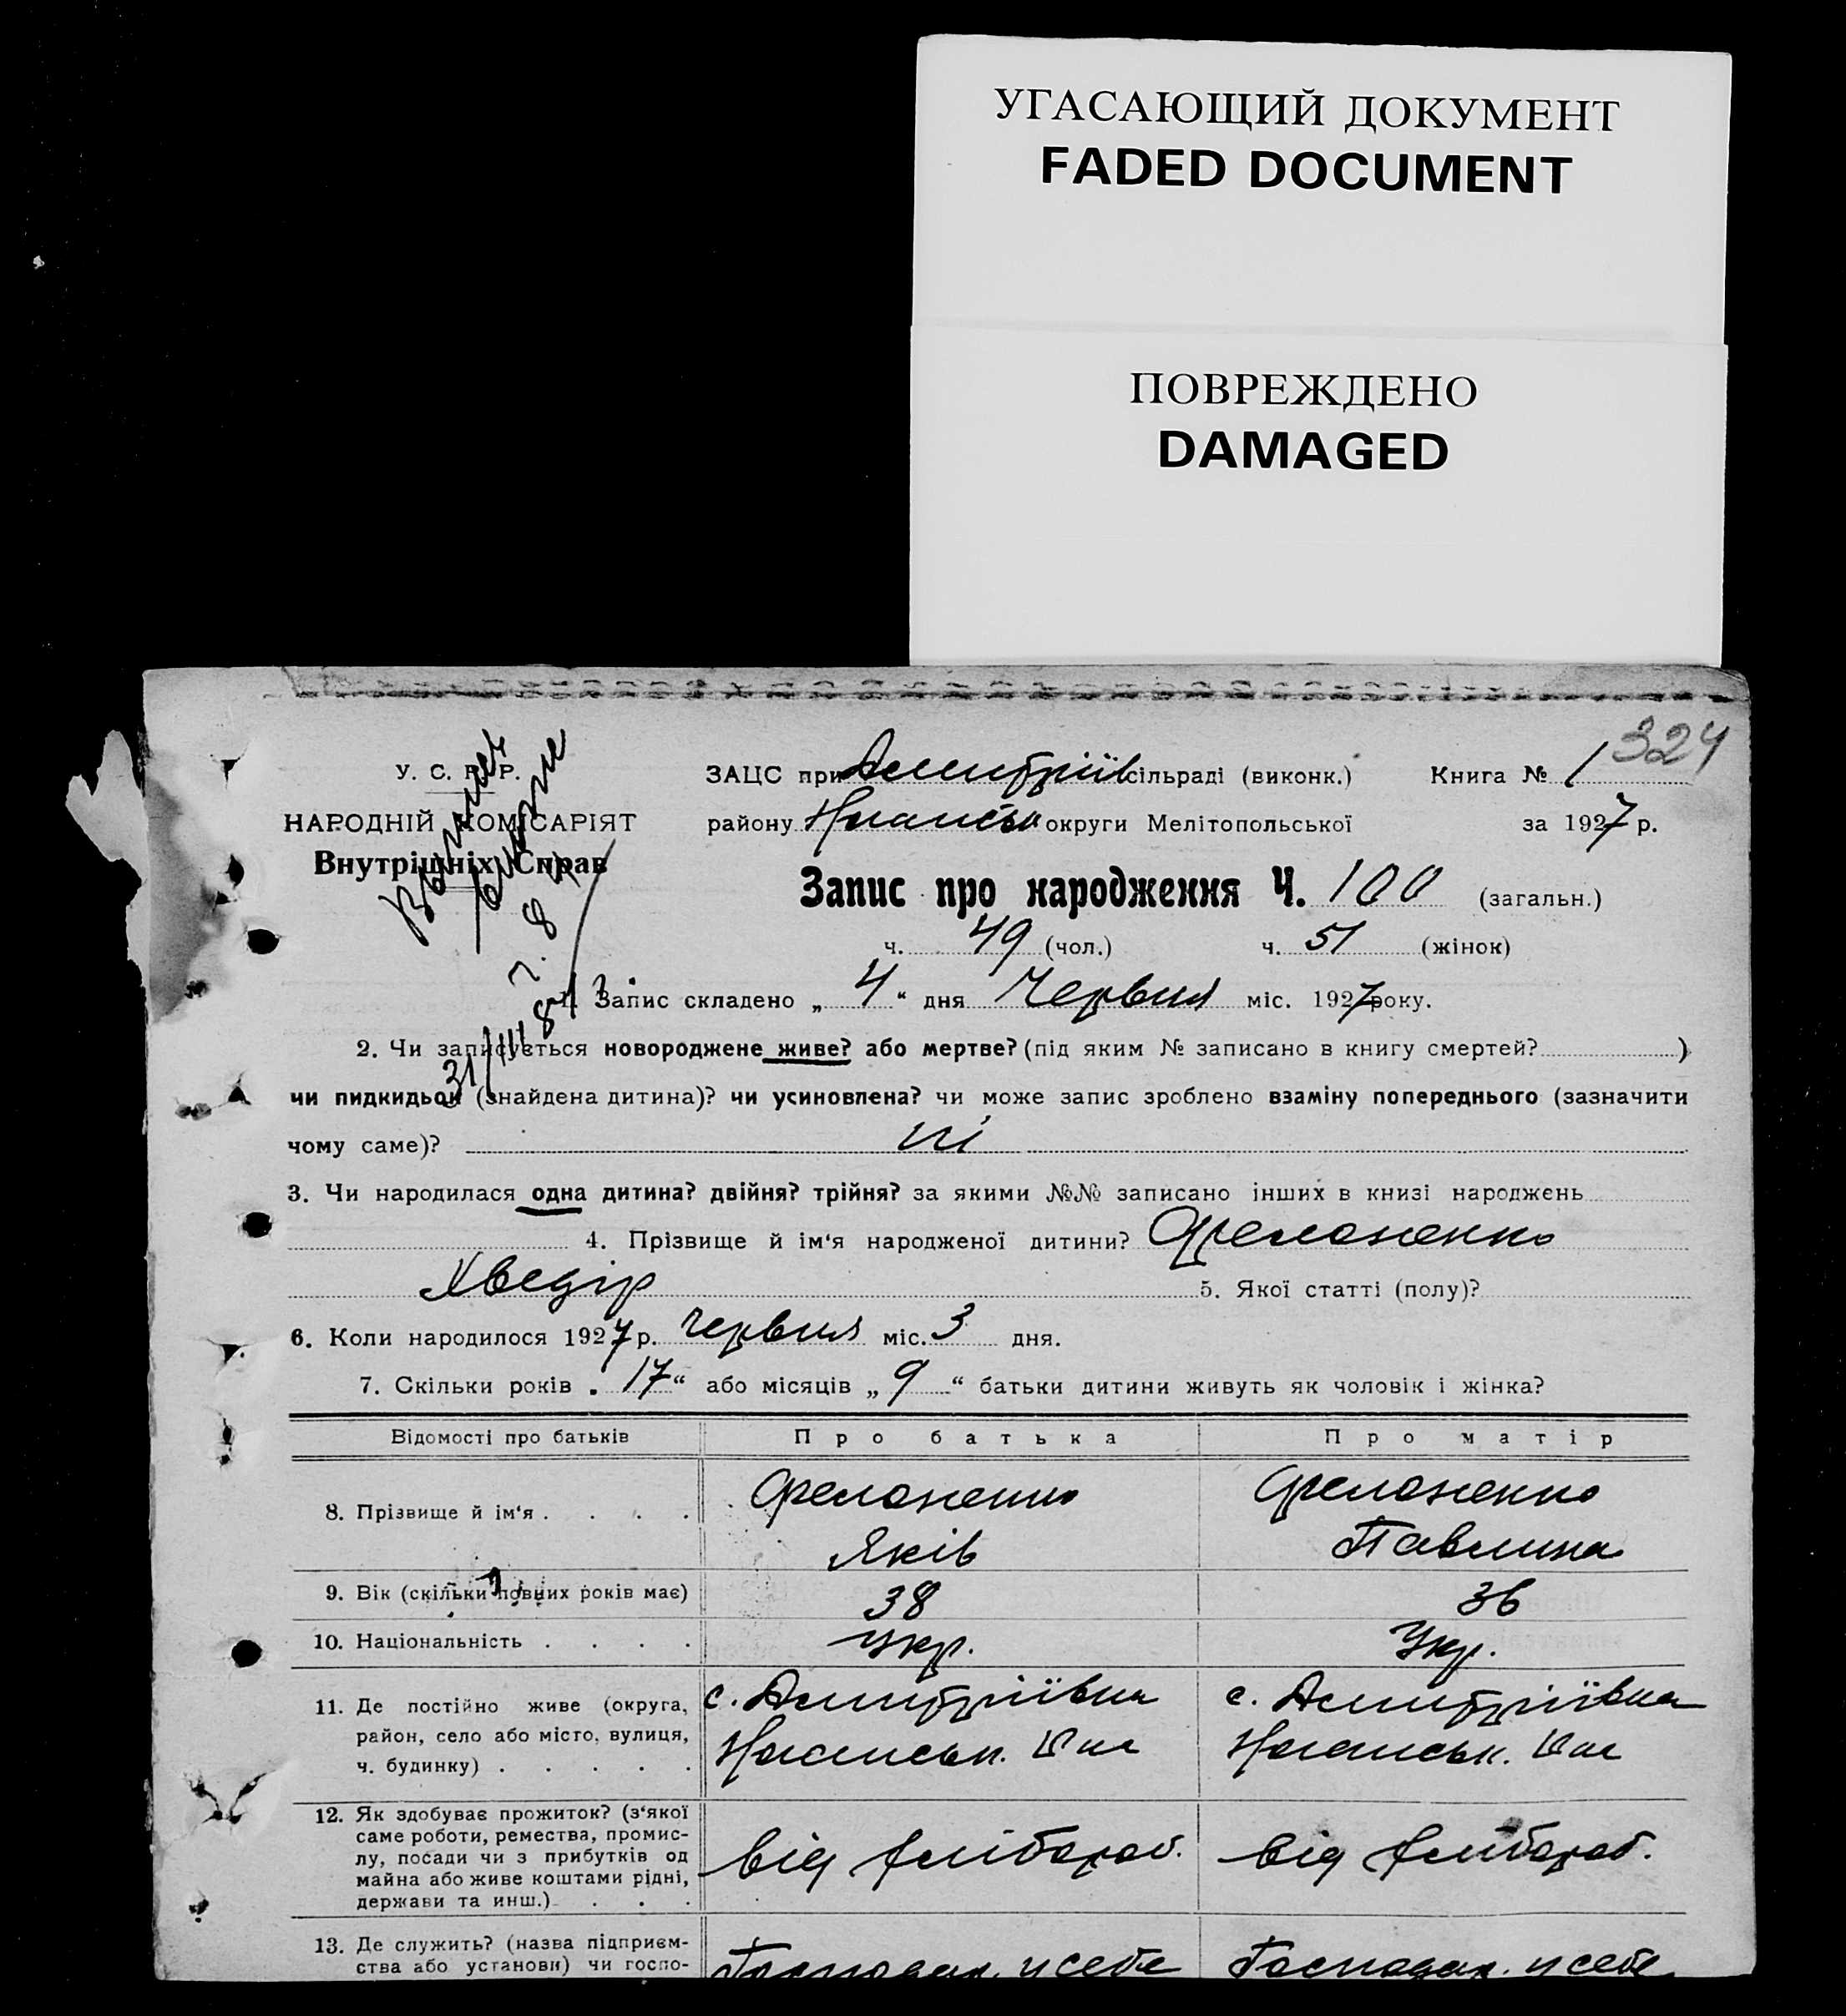 УГАСАЮЩИЙ ДОКУМЕНТ
FADED DOCUMENT
ПОВРЕЖДЕНО
DAMAGED
324
У. С. Р. Р.
НАРОДНІЙ КОМІСАРІЯТ
Внутрішніх Справ
31/III 87.
ЗАЦС при Дмитріїв сільраді (виконк.) Книга № 1
району округи Мелітопольської за 1927 р.
Запис про народження Ч. 100 (загальн.)
ч. 49 (чол.) ч. 51 (жінок)
1. Запис складено „ 4 “ дня Червня міс. 1927 року.
2. Чи записується новороджене живе? або мертве? (під яким № записано в книгу смертей? )
чи пидкидьок (знайдена дитина)? чи усиновлена? чи може запис зроблено взаміну попереднього (зазначити
чому саме)? ні
3. Чи народилася одна дитина? двійня? трійня? за якими №№ записано інших в книзі народжень
4. Прізвище й ім‘я народженої дитини? Филоненко
Хведір 5. Якої статті (полу)?
6. Коли народилося 1927 р. червня міс. 3 дня.
7. Скільки років „ 17 “ або місяців „ 9 “ батьки дитини живуть як чоловік і жінка?
Відомості про батьків Про батька Про матір
8. Прізвище й ім‘я . . . . Филоненко Филоненко
Яків Павлина
9. Вік (скільки повних років має) 38 36
10. Національність . . . . Укр. Укр.
11. Де постійно живе (округа, с. Дмитріївка с. Дмитріївка
район, село або місто, вулиця,
ч. будинку) . . . . .
12. Як здобуває прожиток? (з‘якої
саме роботи, ремества, промис-
лу, посади чи з прибутків од від хлібороб. від хлібороб.
майна або живе коштами рідні,
держави та инш.) . . .
13. Де служить? (назва підприєм- Господар. у себе Господар. у себе
ства або установи) чи госпо-